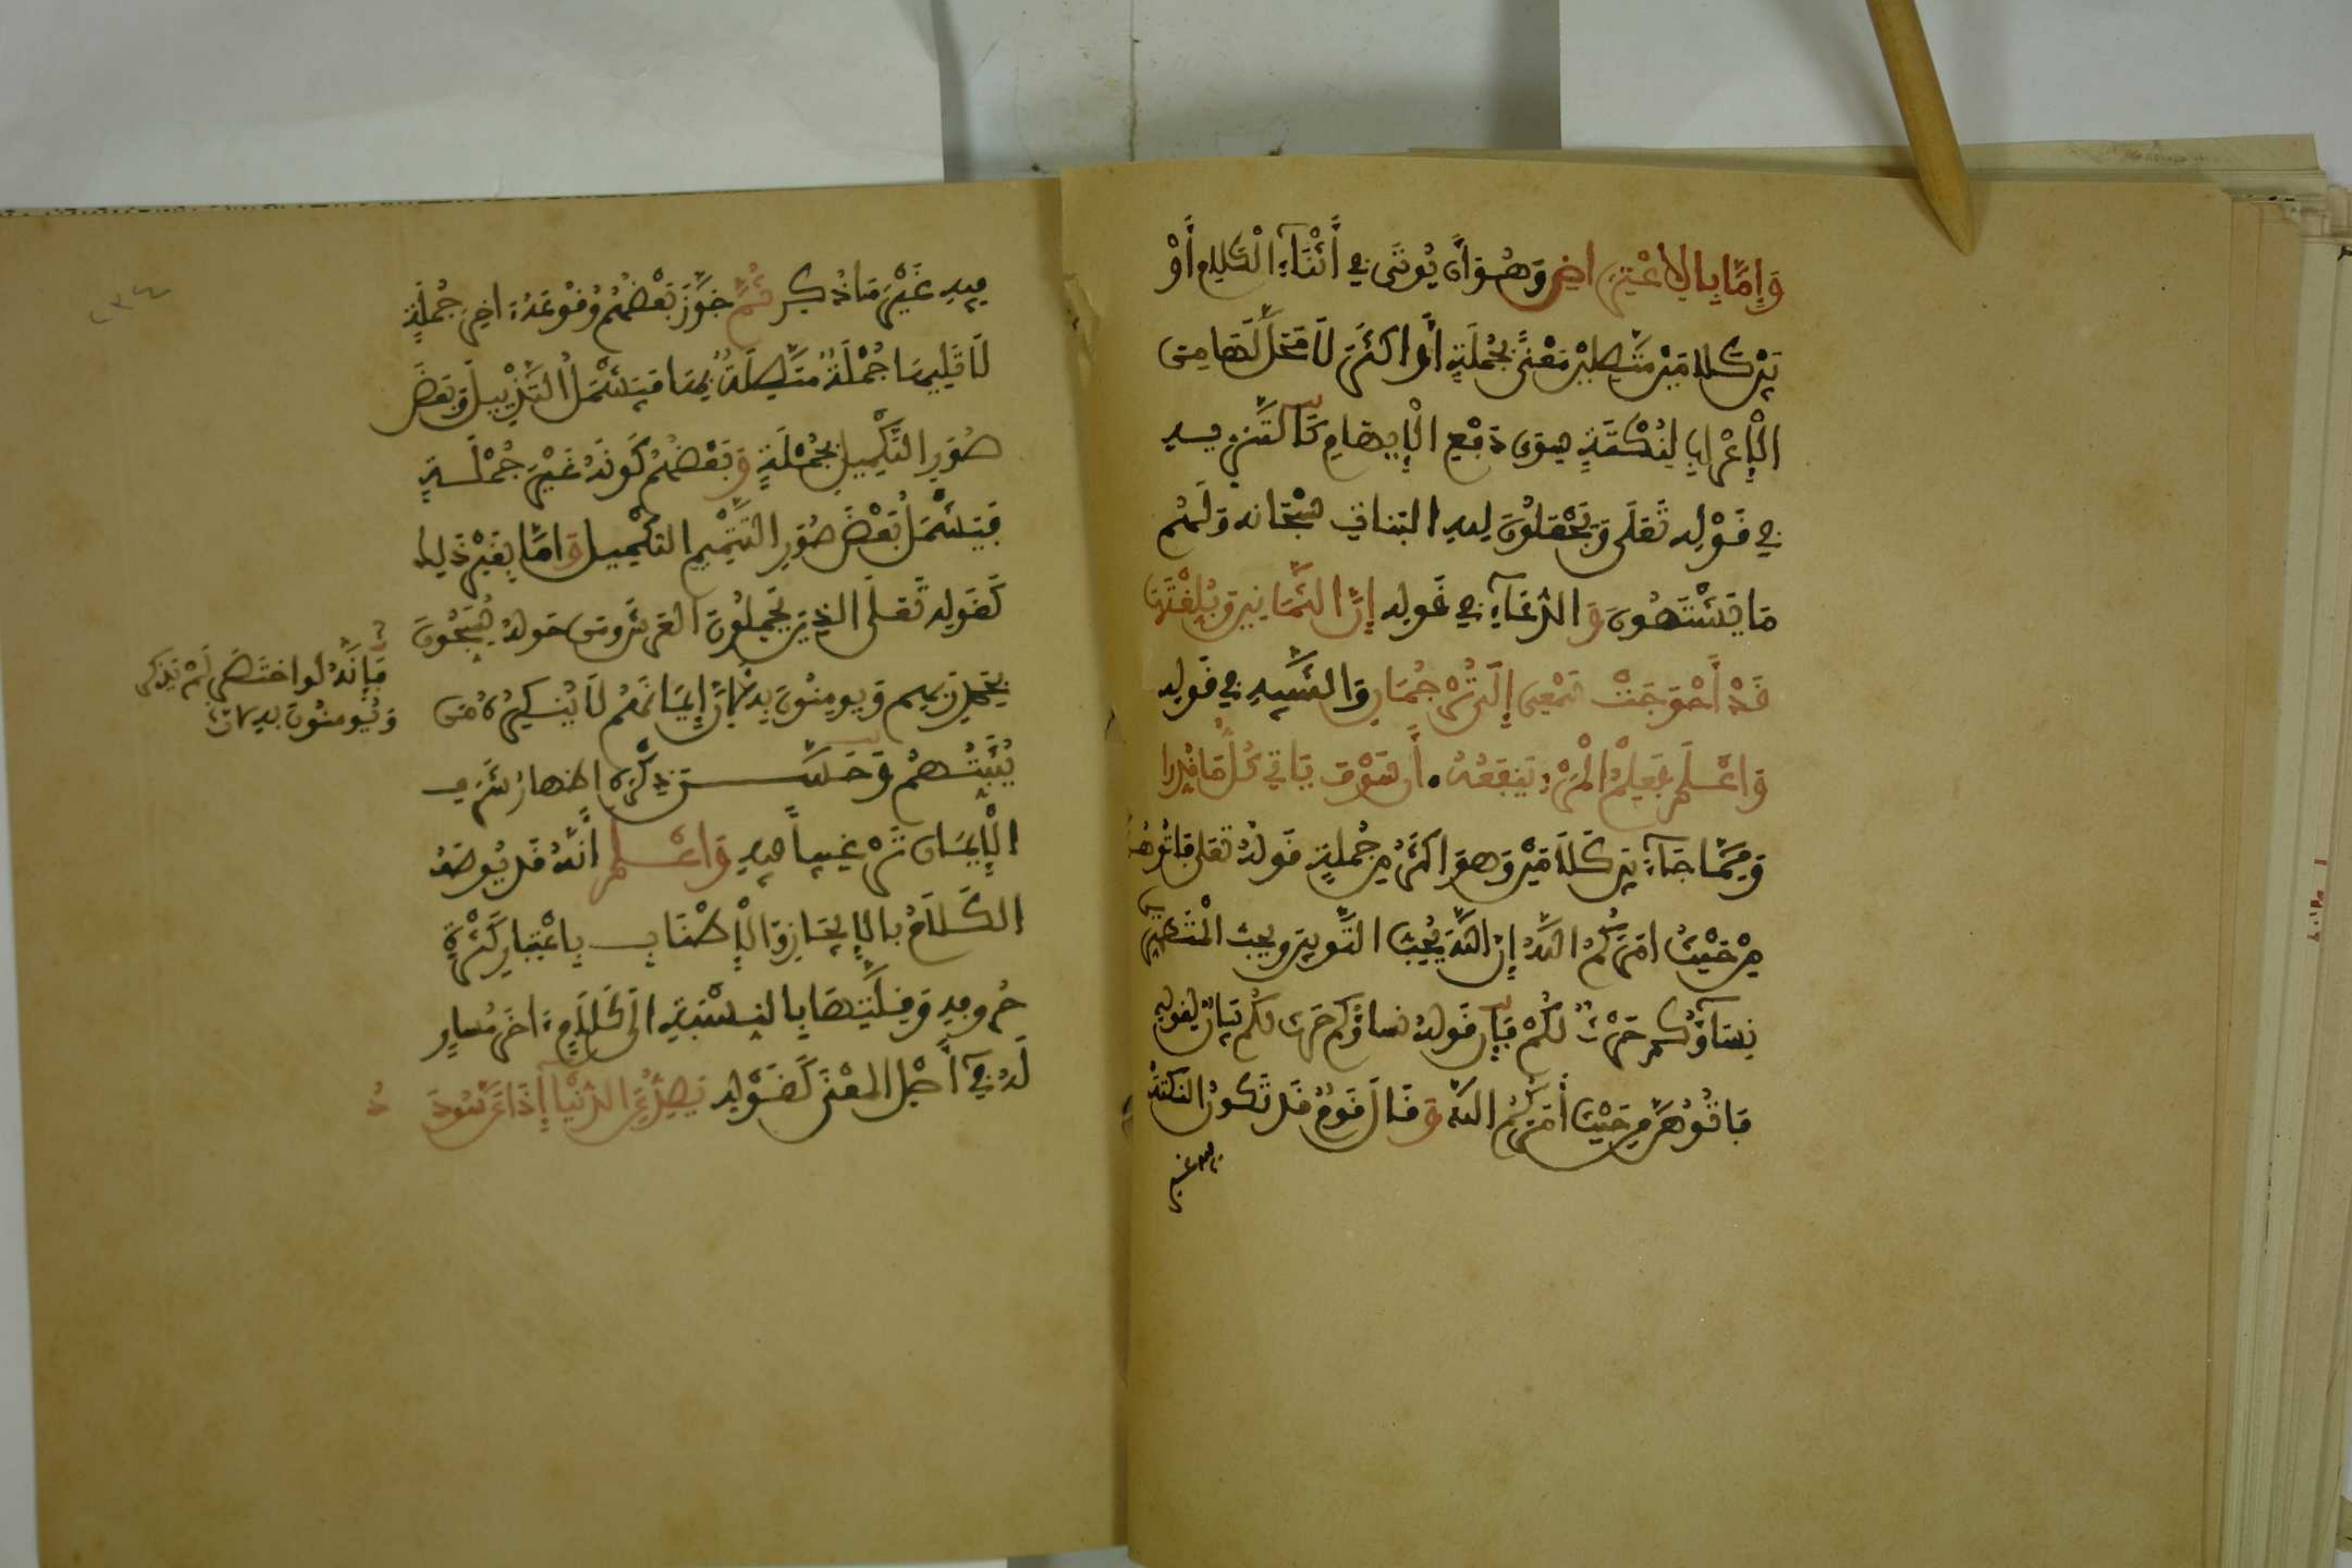 وَإِمَّا بِالِاعْتِرَاضِ وَهُوَ أَن يُوتَى فِي أَثْنَاءِ الْكَلَامِ أَوْ
بَيْنَ كَلَامَيْنِ مُتَّصِلَيْنِ مَعْنًى بِجُمْلَةٍ أَوْ اكثَرَ لَا مَحَلَّ لَهَا مِنَ
الْإِعْرَابِ لِنُكْتَةٍ سِوَى دَفْعِ الْإِيهَامِ كَالتَّنْزِيهِ
فِي قَوْلِهِ تَعَلَى وَيَجْعَلُونَ لِلهِ البَنَاتِ سُبْحَانَه وَلَهُم
مَا يَشْتَهُونَ وَالدُّعَاءِ فِي قَولِه إِنَّ الثَّمَانِينَ وَبُلِّغْتَهَا
قَدْ أَحْوَجَتْ سَمْعِي إِلَى تُرْجُمَانِ وَالتَّنْبِيهِ فِي قَولِهِ
وَاعْلَم فَعِلْمُ الْمَرْءِ يَنفَعُهُ . أَن سَوْفَ يَاتِي كُلُّ مَا قُدِرَا
وَمِمَّا جَاءَ بَيْنَ كَلَامَيْنِ وَهوَ اكثَرُ مِن جُملَةٍ قَولُهُ تَعَلى فَاتُوهُنَّ
مِنْ حَيْثُ امَرَكُمُ اللَّهُ إِنَّ اللَّهَ يُحِبُّ التَّوَّبِينَ ويحب الْمُتَطَهِّرِينَ
نِسَآؤُكُمْ حَرْثٌ لَكُمْ فَإِنَّ قَولَهُ نساؤكم حَرث لكُم بَيَانٌ لِقَولِهِ
فَاتُوهُنَّ مِن حَيْثُ أَمَرَكُمُ اللَّهُ وَقَالَ قَومٌ قَد تَكُونُ النُّكْتَةُ
فِيهِ غَيْرَ مَا ذُكِرَ ثُمَّ جَوَّزَ بَعْضُهُم وُقُوعَهُ ءَاخِرَ جُمْلَةٍ
لَا تَلِيهَا جُمْلَةٌ مُتَّصِلَةٌ بِهَا فَيَشْمَلُ التَّذْيِيلَ وَبَعْضَ
صُوَرِ التَّكْمِيلِ بِجُمْلَةٍ وَبَعْضُهُم كَونَهُ غَيْرَ جُمْلَةٍ
فَيَشْمَلُ بَعْضَ صُوَرِ التَّتْمِيمِ التكْمِيلِ وَامَّا بِغَيْرِ ذَلِكَ
كَقَولِهِ تَعَلَى الذِينَ يَحْمِلُونَ العَرْشَ وَمَن حَولَهُ يُسَبِّحُونَ
بِحَمْدِ رَبِّهِم وَيومِنُونَ بِهِ لِأَنَّ إِيمَانَهُم لَا يُنكِرُهُ مَن
فَإِنَّهُ لَو اختَصَرَ لَمْ يَذْكُر
وَيُومِنُونَ بِهِ لِأَنَّ
يُثْبِتُهُمْ وَحَسَّنَ ذِكْرَهُ اظهَارُ شَرَفِ
الْإِيمَانِ تَرْغِيباً فِيهِ وَاعْلَم أَنَّهُ قَد يُوصَفُ
الكَلَامُ بِالإِيجَازِ وَالْإِطْنَابِ بِاعْتِبَارِ كَثْرَةِ
حُرُوفِهِ وَقِلَّتِهَا بِالنِسْبَةِ الَى كَلَامٍ ءَاخَرَ مُسَاوٍ
لَهُ فِي أَصْلِ المَعْنَى كَقَوْلِهِ يَصُدُّ عَنِ الدُّنْيَا إِذَا عَنَّ سُودَدُ